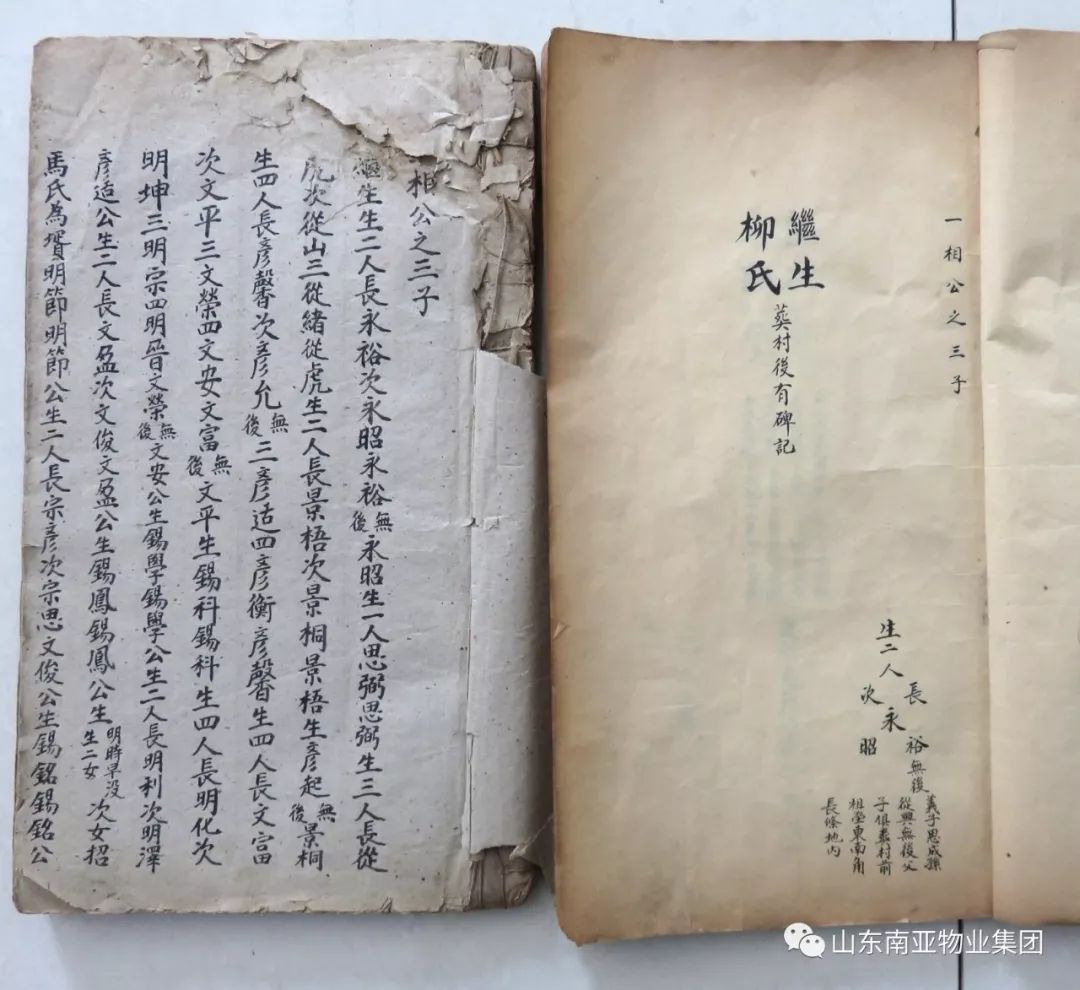 相公之三子
繼生生二人長永裕次永昭永裕無後永昭生一人思弼思弼生三人長從
虎次從山三從緒從虎生二人長景梧次景桐景梧生彥起無後景桐
生四人長彥馨次彥允無後三彥适四彥衡彥馨生四人長文富
次文平三文榮四文安文富無後文平生錫科錫科生四人長明化次
明坤三明宗四明晉文榮無後文安公生錫學錫學公生二人長明利次明澤
彥适公生二人長文盈次文俊文盈公生錫鳳錫鳳公生明時早没生二女次女招
馬氏為壻明節明節公生二人長宗彥次宗思文俊公生錫銘錫銘公
一相公之三子
繼生
柳氏
葬村後有碑記
生二人
長永裕無後
次永昭
義子思成孫
從興無後父
子俱葬村前
祖塋東南角
長條地内
山东南亚物业集团